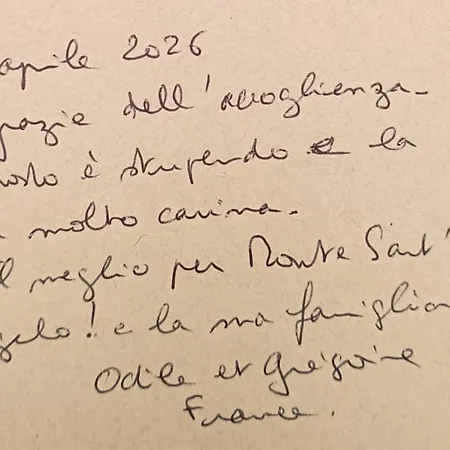 aprile 2026
grazie dell'accoglienza.
posto è stupendo e la
molto carina.
Il meglio per Monte Sant'
gelo! e la sua famiglia
Odile et Grégoire
France.